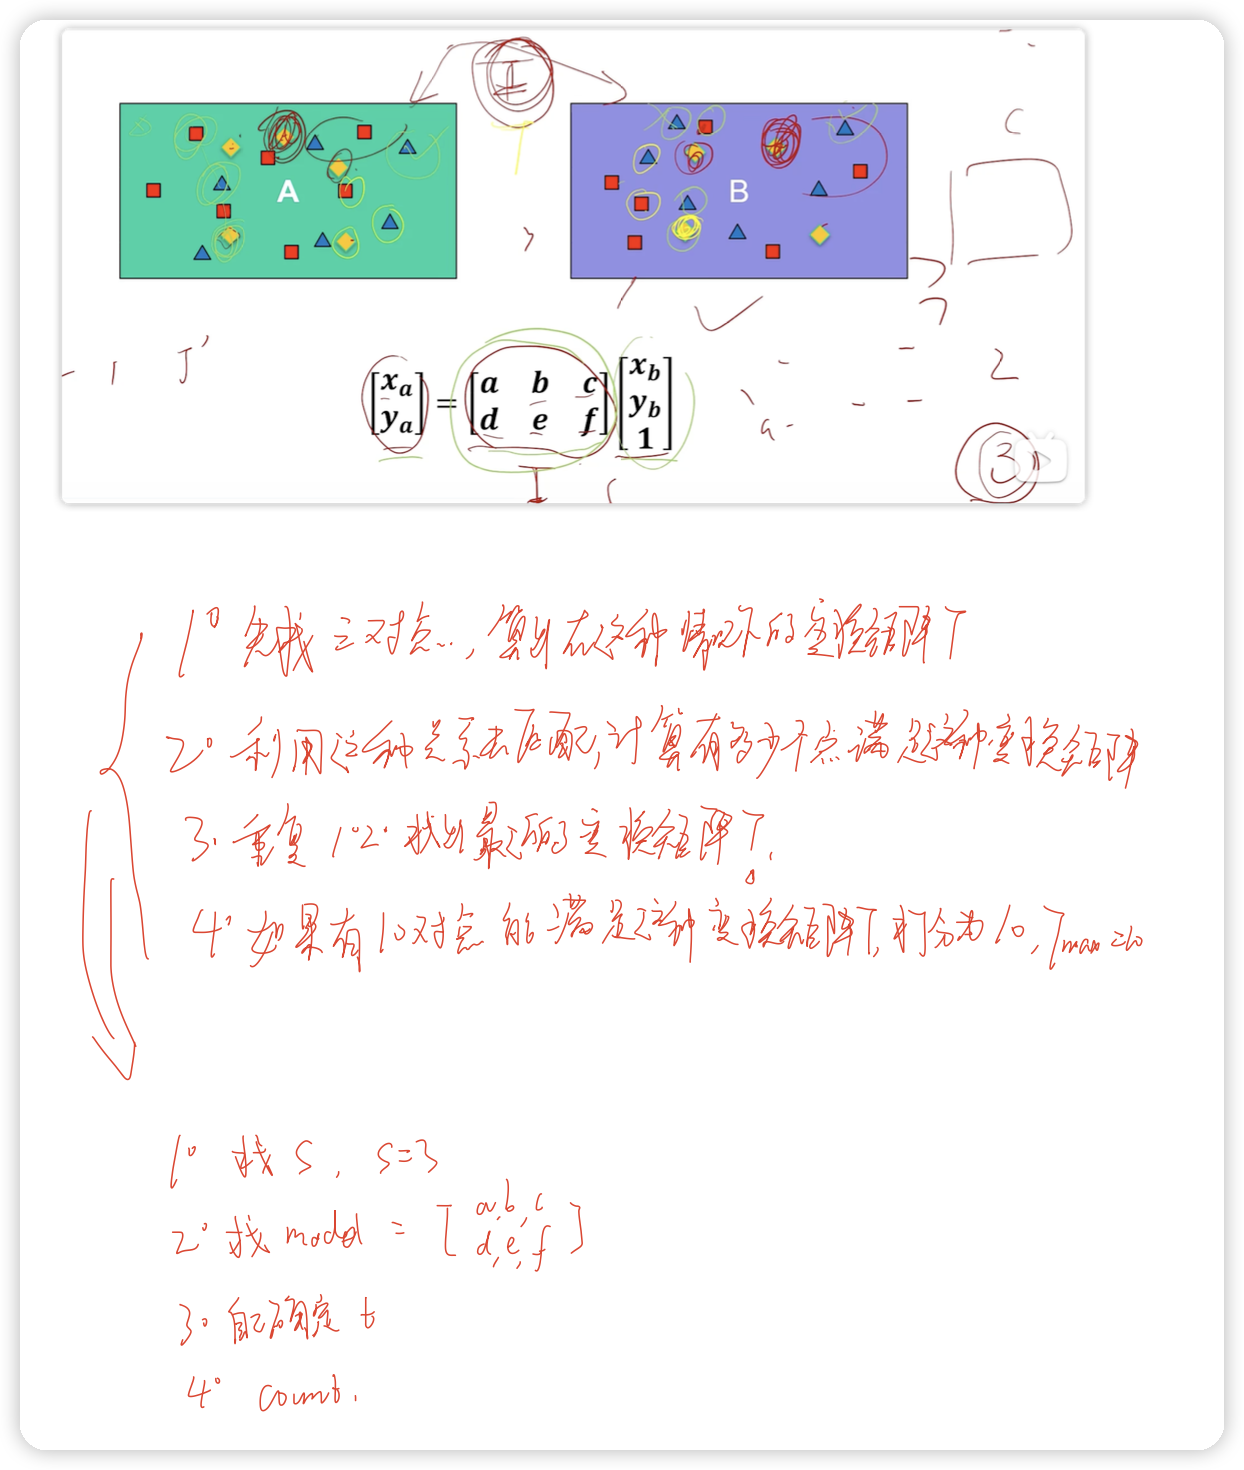 I
A
B
C
[x_a y_a] = [a b c d e f] [x_b y_b 1]
2
3
1° 先找三对点..,算出在这种情况下的变换矩阵T
2° 利用这种关系去匹配,计算有多少个点满足这种变换矩阵
3. 重复1°2°找出最好的变换矩阵T.
4° 如果有10对点能满足这种变换矩阵T,打分为10,Tmax=10
1° 找S, S=3
2° 找model = [a,b,c d,e,f]
3° 自己确定t
4° count.